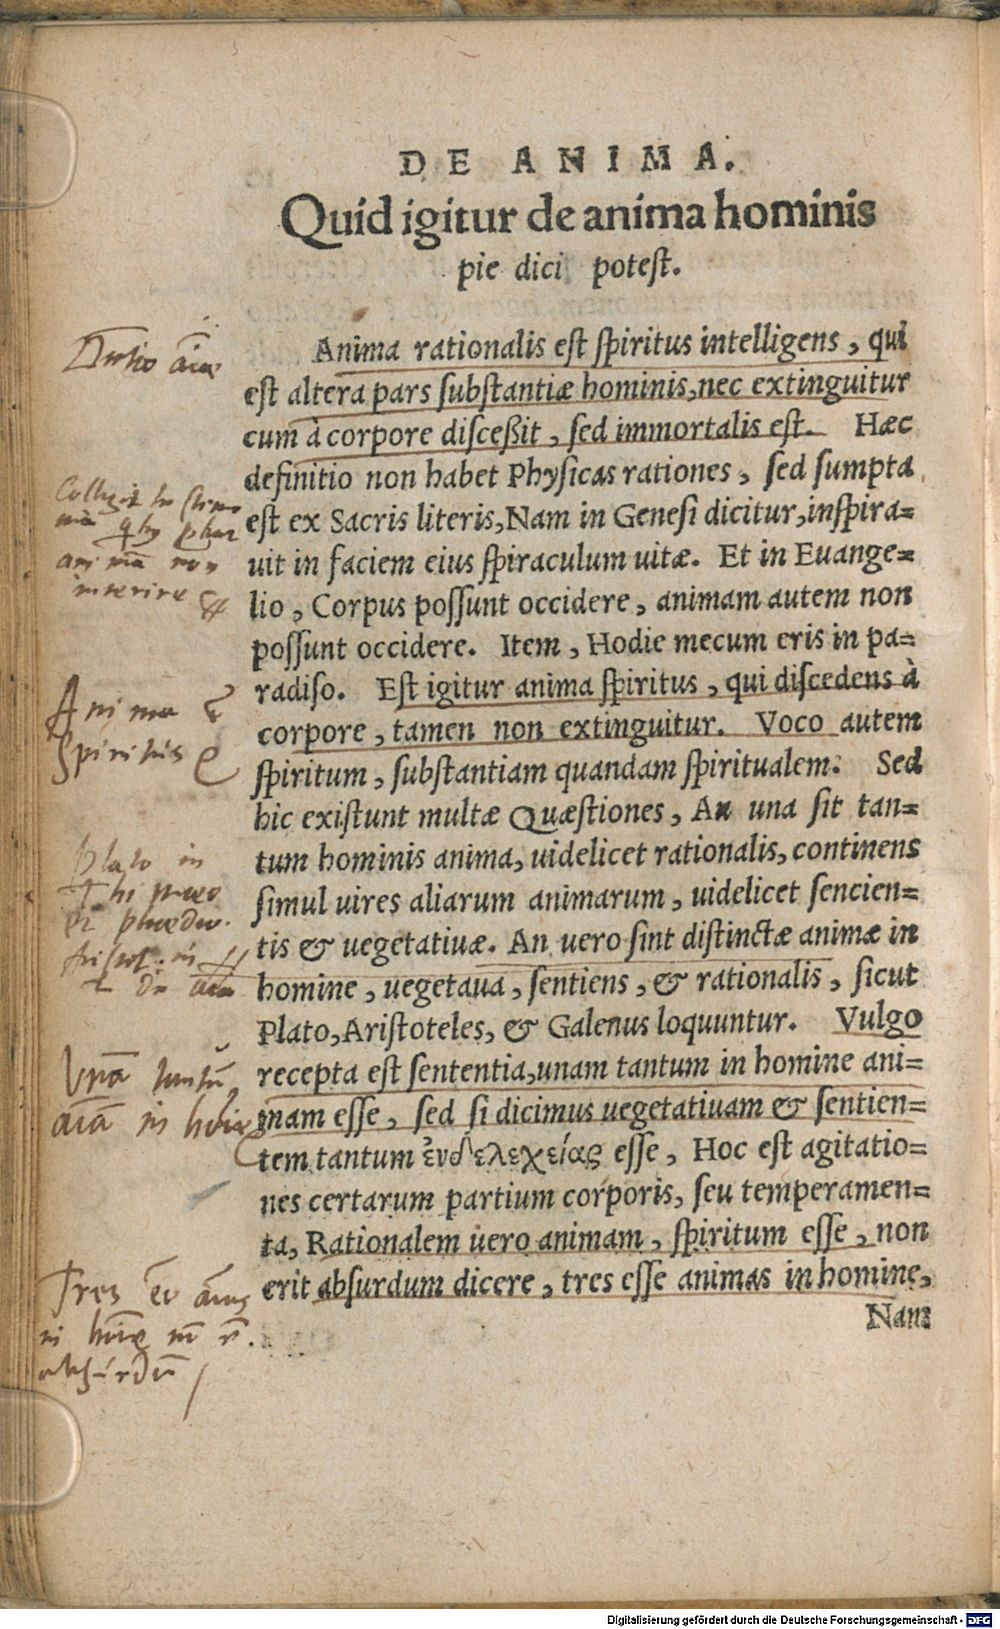 DE ANIMA.
Quid igitur de anima hominis
pie dici potest.
Anima rationalis est spiritus intelligens, qui
est altera pars substantiæ hominis, nec extinguitur
cum à corpore disceßit, sed immortalis est. Hæc
definitio non habet Physicas rationes, sed sumpta
est ex Sacris literis, Nam in Genesi dicitur, inspira=
uit in faciem eius spiraculum uitæ. Et in Euange=
lio, Corpus possunt occidere, animam autem non
possunt occidere. Item, Hodie mecum eris in pa=
radiso. Est igitur anima spiritus, qui discedens à
corpore, tamen non extinguitur. Voco autem
spiritum, substantiam quandam spiritualem. Sed
hic existunt multæ Quæstiones, An una sit tan=
tum hominis anima, uidelicet rationalis, continens
simul uires aliarum animarum, uidelicet sencien=
tis & uegetatiuæ. An uero sint distinctæ animæ in
homine, uegetaua, sentiens, & rationalis, sicut
Plato, Aristoteles, & Galenus loquuntur. Vulgo
recepta est sententia, unam tantum in homine ani=
mam esse, sed si dicimus uegetatiuam & sentien=
tem tantum ἐνδελεχείας esse, Hoc est agitatio=
nes certarum partium corporis, seu temperamen=
ta, Rationalem uero animam, spiritum esse, non
erit absurdum dicere, tres esse animas in homine,
Nam
animā non
interire
Anima ē
Spiritus
Plato in
Aristot. in
De aīa
Vnā tantū
aīam in hoīe
Tres
in hoīe nō ē
absurdū
Digitalisierung gefördert durch die Deutsche Forschungsgemeinschaft - DFG